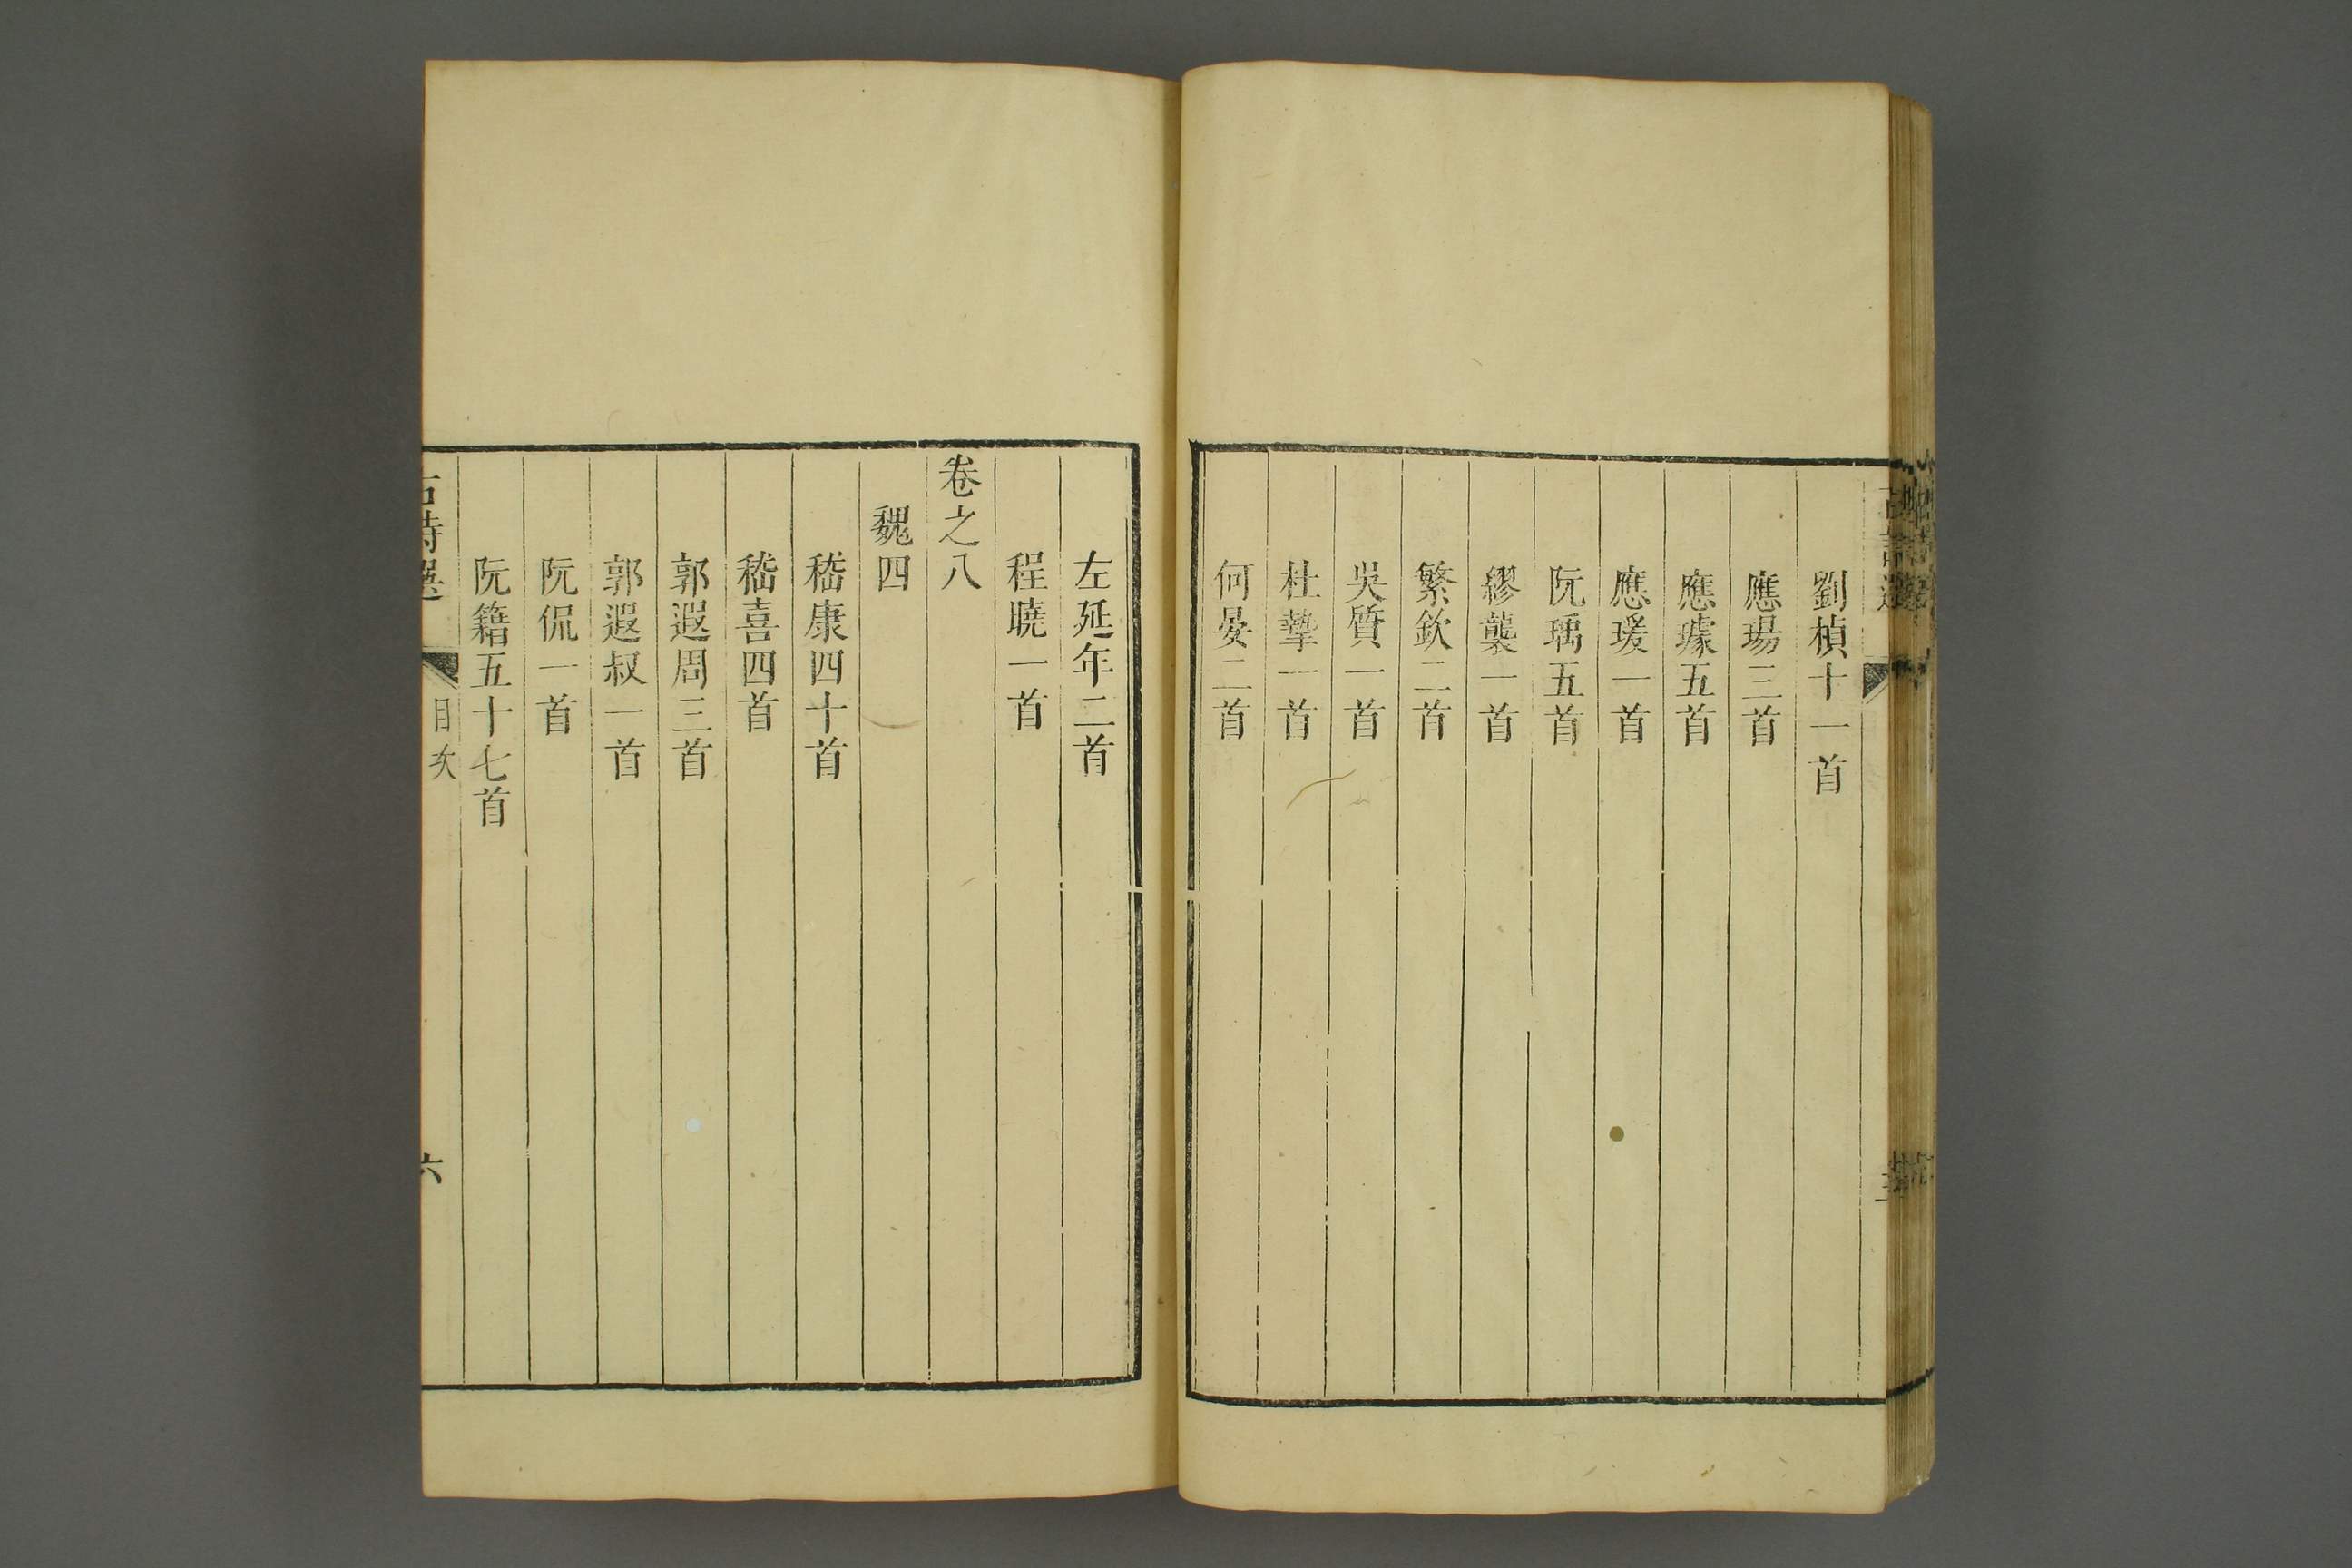 劉楨十一首
應瑒三首
應璩五首
應瑗一首
阮瑀五首
繆襲一首
繁欽二首
吳質一首
杜摯一首
何晏二首
左延年二首
程曉一首
卷之八
魏四
嵇康四十首
嵇喜四首
郭遐周三首
郭遐叔一首
阮侃一首
阮籍五十七首
古詩選
目次
六